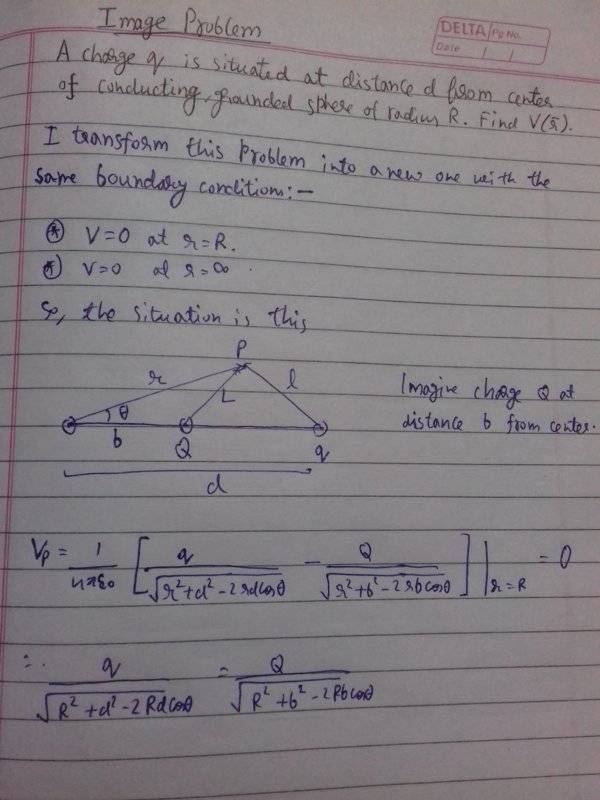 Image Problem
DELTA Pg No.
Date / /
A charge q is situated at distance d from center
of conducting, grounded sphere of radius R. Find V(r̄).
I transform this problem into a new one with the
same boundary condition:—
* V=0 at r=R.
* V=0 at r=∞.
So, the situation is this
P
r L l
θ
b Q q
d
Imagine charge Q at
distance b from center.
Vp = 1/4πε0 [ q/√(r²+d²-2rdcosθ) - Q/√(r²+b²-2rbcosθ) ] |r=R = 0
∴ q/√(R²+d²-2Rdcosθ) = Q/√(R²+b²-2Rbcosθ)